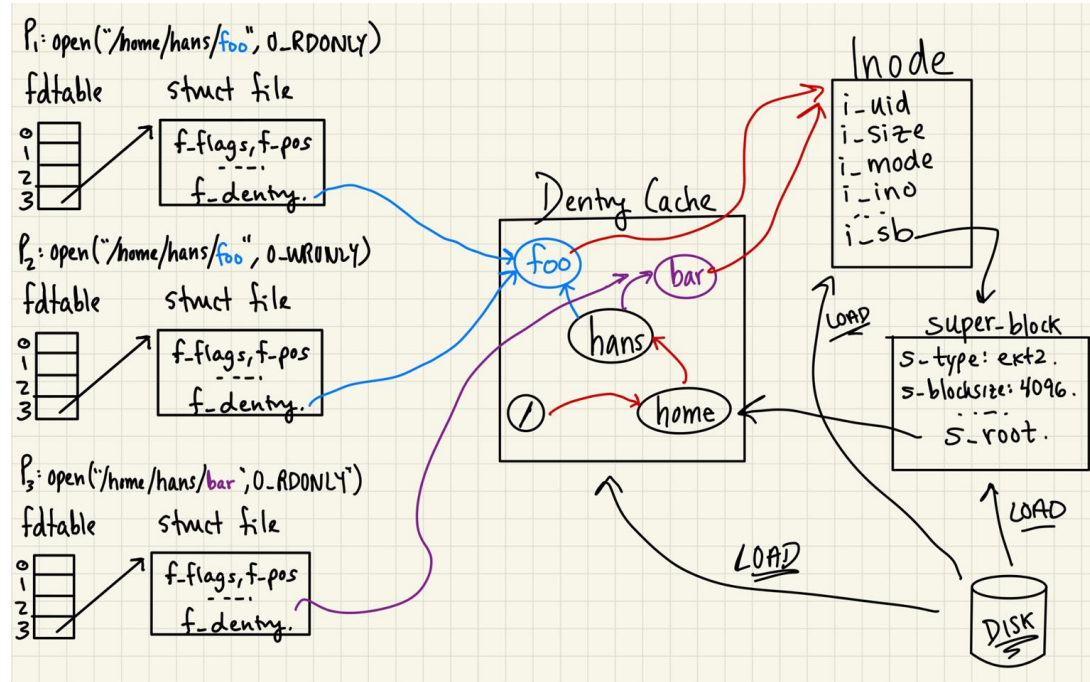 P1: open("/home/hans/foo", O_RDONLY)
fdtable struct file
0
1
2
3
f_flags, f_pos
f_dentry.
P2: open("/home/hans/foo", O_WRONLY)
fdtable struct file
0
1
2
3
f_flags, f_pos
f_dentry.
P3: open("/home/hans/bar", O_RDONLY")
fdtable struct file
0
1
2
3
f_flags, f_pos
f_dentry.
Dentry Cache
foo
bar
hans
/
home
Inode
i_uid
i_size
i_mode
i_ino
i_sb
LOAD
super_block
s_type: ext2.
s_blocksize: 4096.
s_root.
LOAD
LOAD
DISK